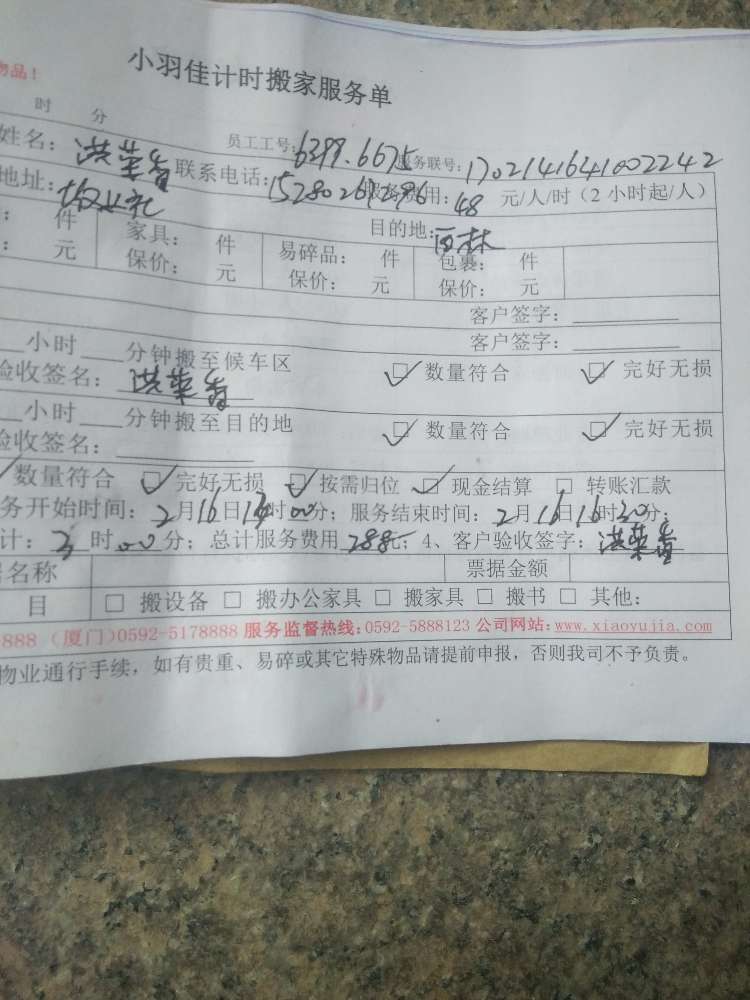 物品！
小羽佳计时搬家服务单
时 分
姓名： 员工工号：6399.6675 服务联号：1702141641002242
地址： 联系电话： 服务费用：48 元/人/时（2 小时起/人）
件 家具： 件 易碎品： 件 目的地：西林 包裹： 件
元 保价： 元 保价： 元 保价： 元
客户签字：
客户签字：
小时 分钟搬至候车区 数量符合 完好无损
验收签名：
小时 分钟搬至目的地 数量符合 完好无损
验收签名：
数量符合 完好无损 按需归位 现金结算 转账汇款
务开始时间：2月16日13时00分；服务结束时间：2月16日16时30分；
计：3时00分；总计服务费用288元；4、客户验收签字：
名称 票据金额
目 □ 搬设备 □ 搬办公家具 □ 搬家具 □ 搬书 □ 其他：
888（厦门）0592-5178888 服务监督热线：0592-5888123 公司网站：www.xiaoyujia.com
物业通行手续，如有贵重、易碎或其它特殊物品请提前申报，否则我司不予负责。